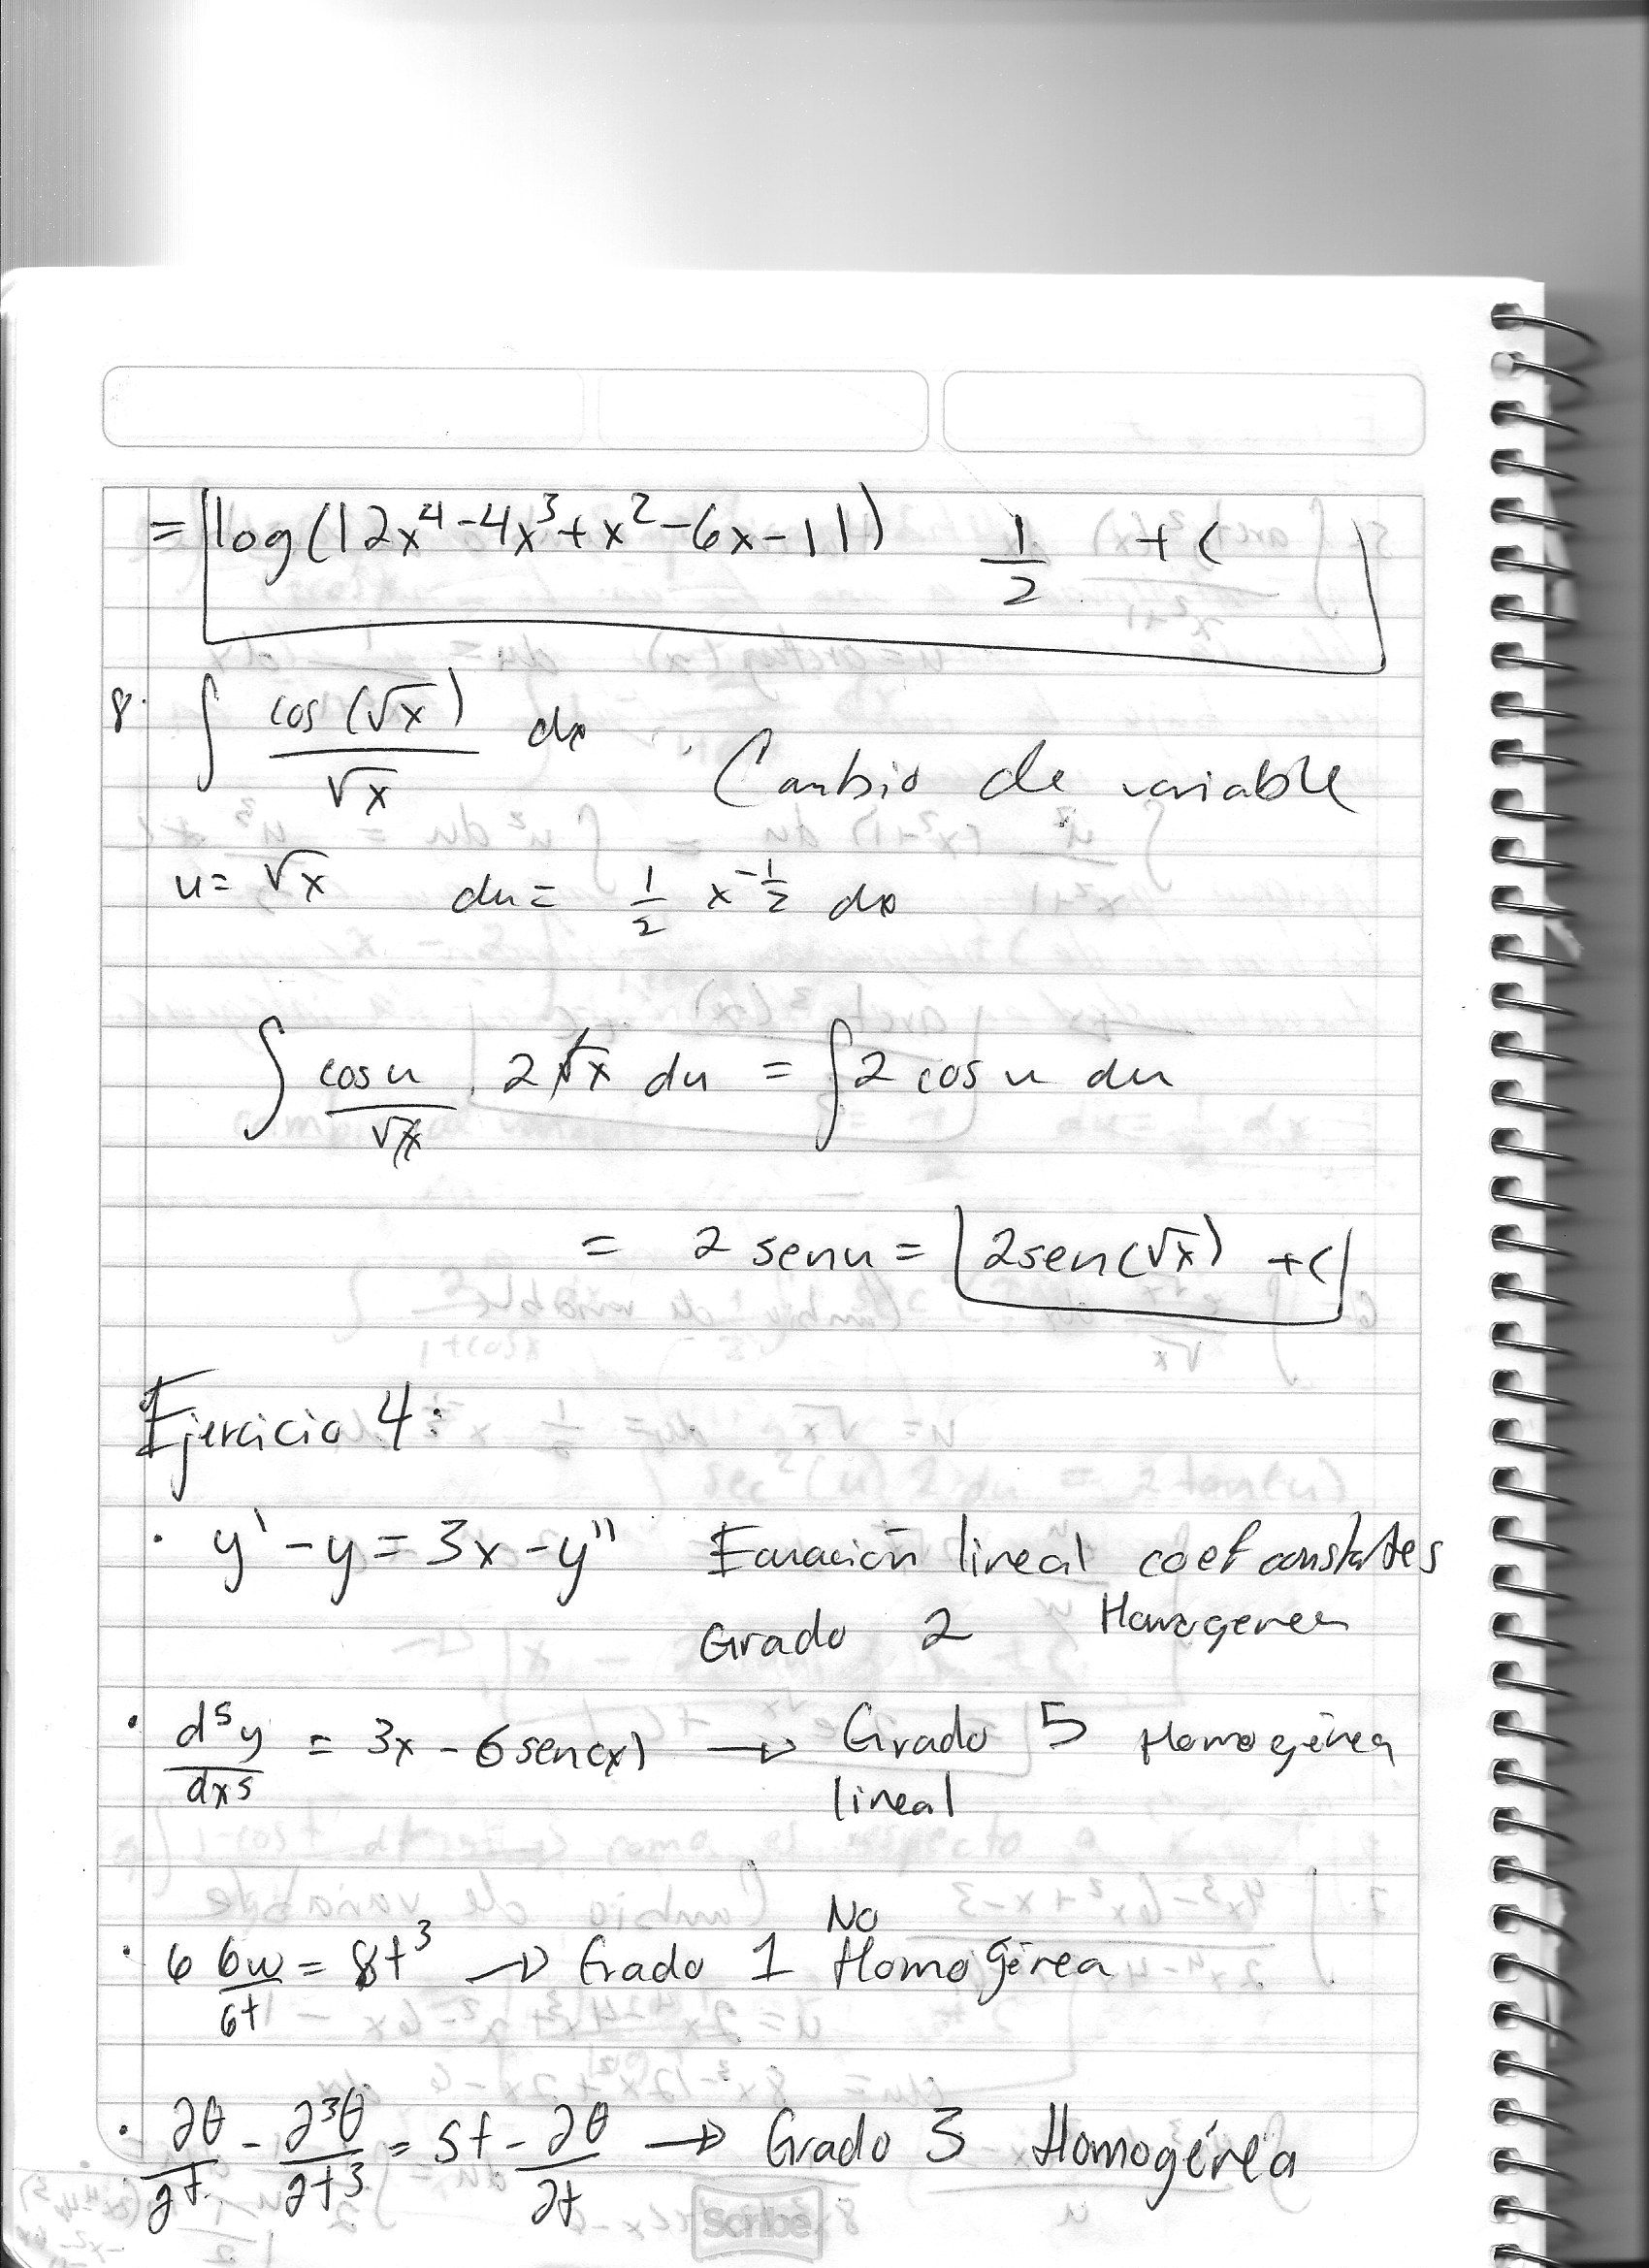 = log(|2x⁴-4x³+x²-6x-1|) 1/2 + C
8. ∫ cos(√x)/√x dx Cambio de variable
u= √x du= 1/2 x^-1/2 dx
∫ cos u/√x 2√x du = ∫2 cos u du
= 2 sen u = 2sen(√x) +C
Ejercicio 4:
· y' - y = 3x - y'' Ecuación lineal coef constates
Grado 2 Homogenea
· d⁵y/dx⁵ = 3x - 6sen(x) → Grado 5 Homogénea
lineal
No
· 6 6w/6t = 8t³ → Grado 1 Homogénea
· ∂θ/∂t - ∂³θ/∂t³ = 5t - ∂θ/∂t → Grado 3 Homogénea
Scribe